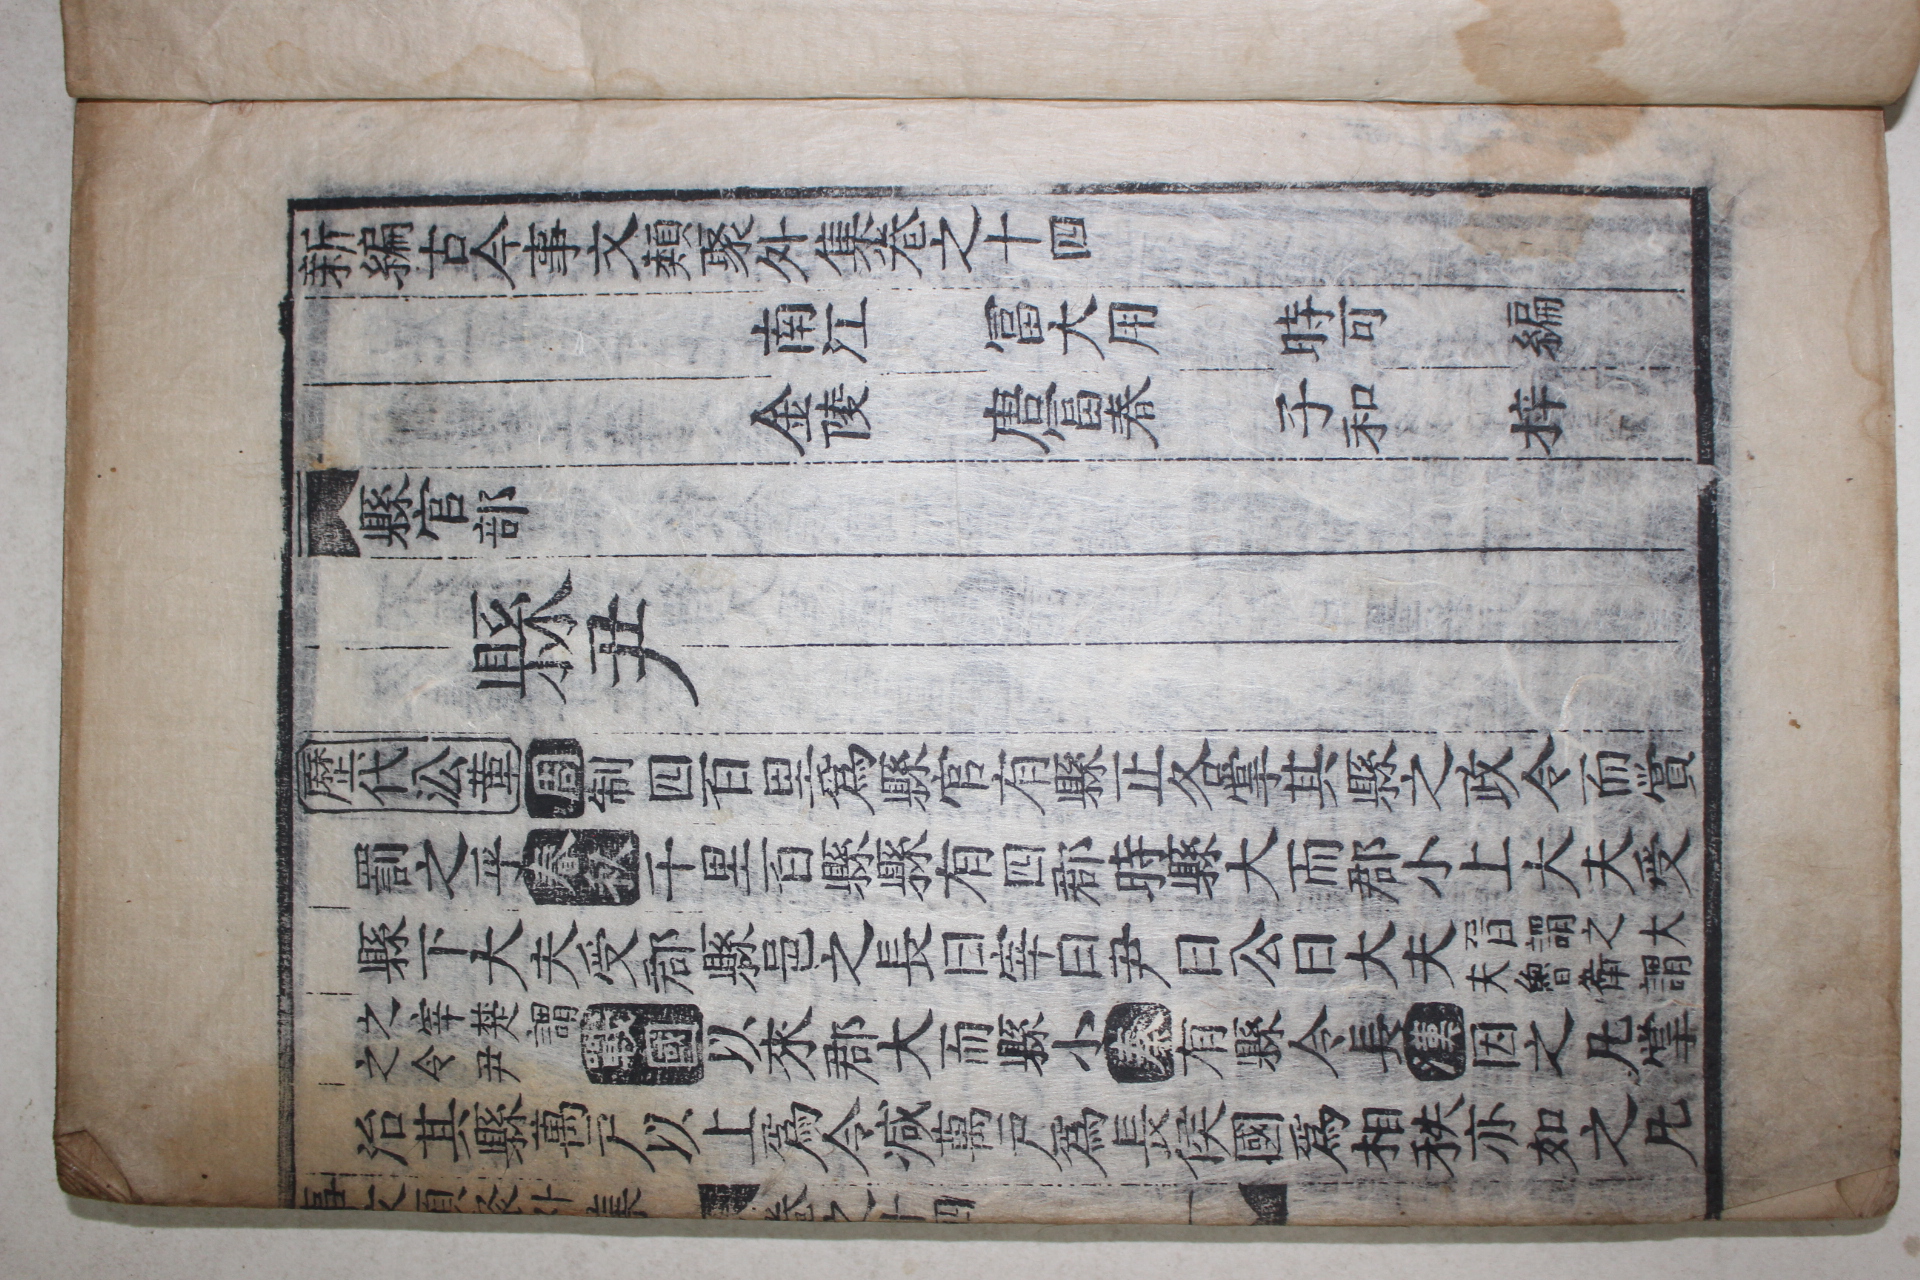 新編古今事文類聚外集卷之十四
南江 富大用 時可 編
金陵 唐富春 子和 梓
縣官部
縣尹
歷代沿革 周制四百里爲縣官有縣正各掌其縣之政令而賞
罰之平春秋千里百縣縣有四部時縣大而郡小上大夫受
縣下大夫受郡縣邑之長曰宰曰尹曰公曰大夫
曰謂之大
夫魯衛謂
之宰楚謂
之令尹
戰國以來郡大而縣小秦有縣令長漢因之凡掌
治其縣萬戶以上爲令減萬戶爲長侯國爲相秩亦如之凡
事文類聚外集 卷之十四